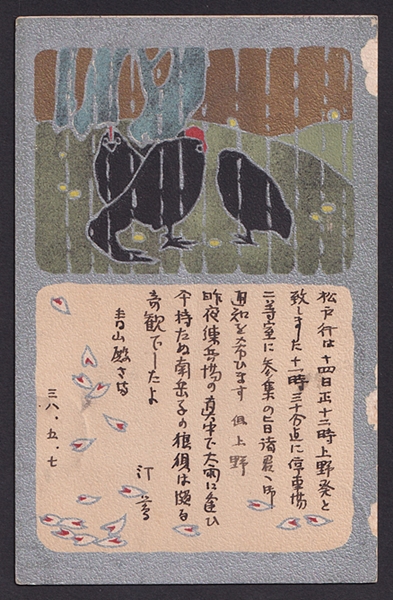 松戸行は十四日正十二時上野発と
致しました十一時三十分迄に停車場
二等室に参集の旨諸君へ御
通知を希ひます 但上野
昨夜練兵場の真中で大雨に逢ひ
傘持たぬ南岳子の狼狽は頗る
奇観でしたよ
汀
青山殿さま
三八、五、七